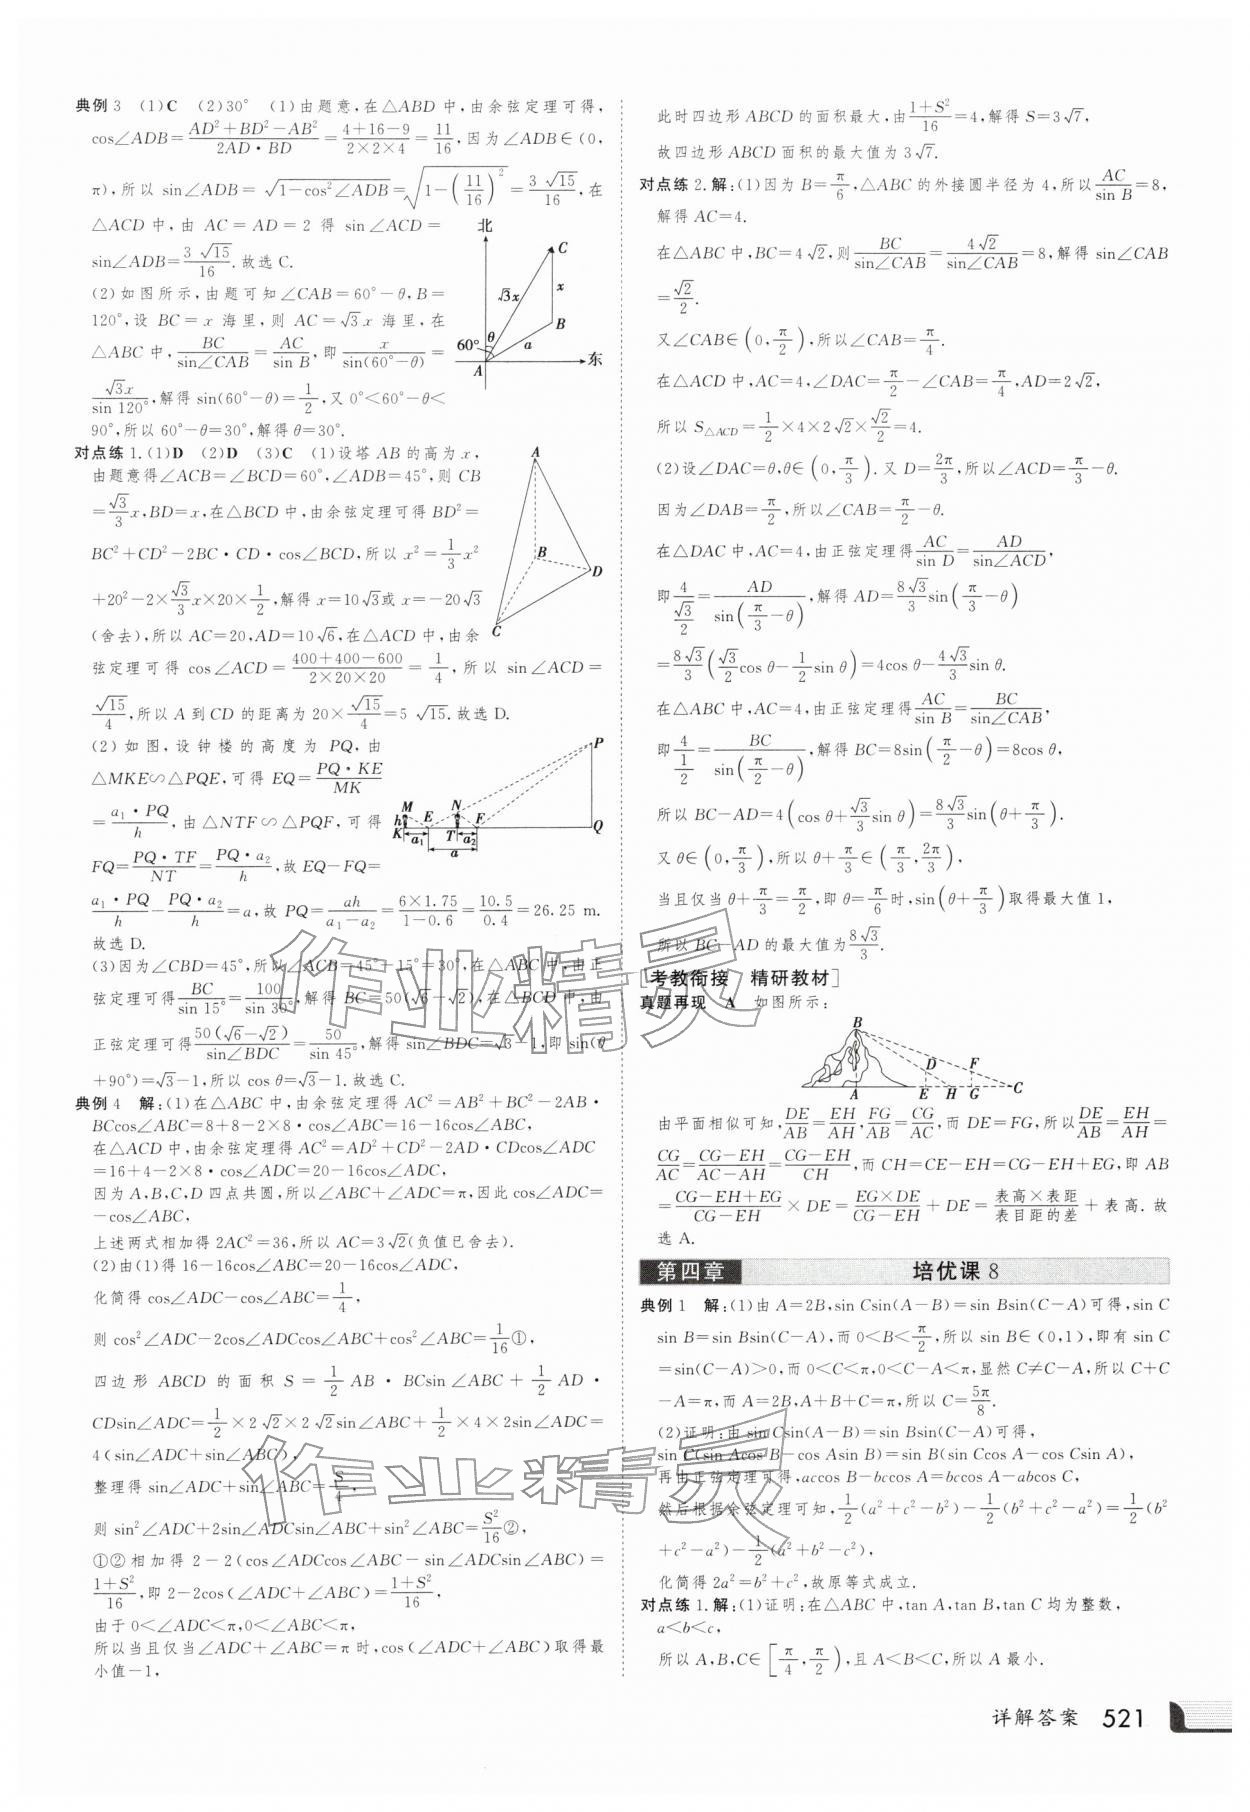 典例3 (1)C (2)30° (1)由题意,在△ABD中,由余弦定理可得,
cos∠ADB=\frac{AD²+BD²-AB²}{2AD·BD}=\frac{4+16-9}{2×2×4}=\frac{11}{16},因为∠ADB∈(0,
π),所以 sin∠ADB=√(1-cos²∠ADB)=√(1-(\frac{11}{16})²)=\frac{3√15}{16},在
△ACD中,由 AC=AD=2 得 sin∠ACD=
sin∠ADB=\frac{3√15}{16}.故选C.
(2)如图所示,由题可知∠CAB=60°-θ,B=
120°,设 BC=x 海里,则 AC=√3x 海里,在
△ABC中,\frac{BC}{sin∠CAB}=\frac{AC}{sin B},即\frac{x}{sin(60°-θ)}=
\frac{√3x}{sin 120°},解得sin(60°-θ)=\frac{1}{2},又0°<60°-θ<
90°,所以60°-θ=30°,解得θ=30°.
北
C
√3x
x
B
60°
θ
a
A
东
对点练1.(1)D (2)D (3)C (1)设塔AB的高为x,
由题意得∠ACB=∠BCD=60°,∠ADB=45°,则 CB
=\frac{√3}{3}x,BD=x,在△BCD中,由余弦定理可得BD²=
BC²+CD²-2BC·CD·cos∠BCD,所以 x²=\frac{1}{3}x²
+20²-2×\frac{√3}{3}x×20×\frac{1}{2},解得x=10√3或x=-20√3
(舍去),所以AC=20,AD=10√6,在△ACD中,由余
弦定理可得 cos∠ACD=\frac{400+400-600}{2×20×20}=\frac{1}{4},所以 sin∠ACD=
\frac{√15}{4},所以A到CD的距离为20×\frac{√15}{4}=5√15.故选D.
A
B
D
C
(2)如图,设钟楼的高度为 PQ,由
△MKE∽△PQE,可得 EQ=\frac{PQ·KE}{MK}
=\frac{a₁·PQ}{h},由△NTF∽△PQF,可得
FQ=\frac{PQ·TF}{NT}=\frac{PQ·a₂}{h},故EQ-FQ=
\frac{a₁·PQ}{h}-\frac{PQ·a₂}{h}=a,故 PQ=\frac{ah}{a₁-a₂}=\frac{6×1.75}{1-0.6}=\frac{10.5}{0.4}=26.25 m.
故选D.
P
M N
h E F
K a₁ T a₂ Q
a
(3)因为∠CBD=45°,所以∠ACB=45°-15°=30°,在△ABC中,由正
弦定理可得\frac{BC}{sin 15°}=\frac{100}{sin 30°},解得BC=50(√6-√2),在△BCD中,由
正弦定理可得\frac{50(√6-√2)}{sin∠BDC}=\frac{50}{sin 45°},解得sin∠BDC=√3-1,即sin(θ
+90°)=√3-1,所以 cos θ=√3-1.故选C.
典例4 解:(1)在△ABC中,由余弦定理得AC²=AB²+BC²-2AB·
BCcos∠ABC=8+8-2×8·cos∠ABC=16-16cos∠ABC,
在△ACD中,由余弦定理得AC²=AD²+CD²-2AD·CDcos∠ADC
=16+4-2×8·cos∠ADC=20-16cos∠ADC,
因为A,B,C,D四点共圆,所以∠ABC+∠ADC=π,因此cos∠ADC=
-cos∠ABC,
上述两式相加得2AC²=36,所以AC=3√2(负值已舍去).
(2)由(1)得16-16cos∠ABC=20-16cos∠ADC,
化简得cos∠ADC-cos∠ABC=\frac{1}{4},
则 cos²∠ADC-2cos∠ADCcos∠ABC+cos²∠ABC=\frac{1}{16}①,
四边形 ABCD 的面积 S=\frac{1}{2}AB·BCsin∠ABC+\frac{1}{2}AD·
CDsin∠ADC=\frac{1}{2}×2√2×2√2sin∠ABC+\frac{1}{2}×4×2sin∠ADC=
4(sin∠ADC+sin∠ABC),
整理得 sin∠ADC+sin∠ABC=\frac{S}{4},
则 sin²∠ADC+2sin∠ADCsin∠ABC+sin²∠ABC=\frac{S²}{16}②,
①②相加得2-2(cos∠ADCcos∠ABC-sin∠ADCsin∠ABC)=
\frac{1+S²}{16},即2-2cos(∠ADC+∠ABC)=\frac{1+S²}{16},
由于0<∠ADC<π,0<∠ABC<π,
所以当且仅当∠ADC+∠ABC=π时,cos(∠ADC+∠ABC)取得最
小值-1,
此时四边形ABCD的面积最大,由\frac{1+S²}{16}=4,解得S=3√7,
故四边形ABCD面积的最大值为3√7.
对点练2.解:(1)因为B=\frac{π}{6},△ABC的外接圆半径为4,所以\frac{AC}{sin B}=8,
解得AC=4.
在△ABC中,BC=4√2,则\frac{BC}{sin∠CAB}=\frac{4√2}{sin∠CAB}=8,解得 sin∠CAB
=\frac{√2}{2}.
又∠CAB∈(0,\frac{π}{2}),所以∠CAB=\frac{π}{4}.
在△ACD中,AC=4,∠DAC=\frac{π}{2}-∠CAB=\frac{π}{4},AD=2√2,
所以 S△ACD=\frac{1}{2}×4×2√2×\frac{√2}{2}=4.
(2)设∠DAC=θ,θ∈(0,\frac{π}{3}).又D=\frac{2π}{3},所以∠ACD=\frac{π}{3}-θ.
因为∠DAB=\frac{π}{2},所以∠CAB=\frac{π}{2}-θ.
在△DAC中,AC=4,由正弦定理得\frac{AC}{sin D}=\frac{AD}{sin∠ACD},
即\frac{4}{\frac{√3}{2}}=\frac{AD}{sin(\frac{π}{3}-θ)},解得AD=\frac{8√3}{3}sin(\frac{π}{3}-θ)
=\frac{8√3}{3}(\frac{√3}{2}cos θ-\frac{1}{2}sin θ)=4cos θ-\frac{4√3}{3}sin θ.
在△ABC中,AC=4,由正弦定理得\frac{AC}{sin B}=\frac{BC}{sin∠CAB},
即\frac{4}{\frac{1}{2}}=\frac{BC}{sin(\frac{π}{2}-θ)},解得BC=8sin(\frac{π}{2}-θ)=8cos θ,
所以 BC-AD=4(cos θ+\frac{√3}{3}sin θ)=\frac{8√3}{3}sin(θ+\frac{π}{3}).
又θ∈(0,\frac{π}{3}),所以θ+\frac{π}{3}∈(\frac{π}{3},\frac{2π}{3}),
当且仅当θ+\frac{π}{3}=\frac{π}{2},即θ=\frac{π}{6}时,sin(θ+\frac{π}{3})取得最大值1,
所以 BC-AD的最大值为\frac{8√3}{3}.
[考教衔接 精研教材]
真题再现 A 如图所示:
B
D F
A E H G C
由平面相似可知,\frac{DE}{AB}=\frac{EH}{AH},\frac{FG}{AB}=\frac{CG}{AC},而DE=FG,所以\frac{DE}{AB}=\frac{EH}{AH}=
\frac{CG}{AC}=\frac{CG-EH}{AC-AH}=\frac{CG-EH}{CH},而CH=CE-EH=CG-EH+EG,即 AB
=\frac{CG-EH+EG}{CG-EH}×DE=\frac{EG×DE}{CG-EH}+DE=\frac{表高×表距}{表目距的差}+表高.故
选A.
第四章 培优课8
典例1 解:(1)由A=2B,sin Csin(A-B)=sin Bsin(C-A)可得,sin C
sin B=sin Bsin(C-A),而0<B<\frac{π}{2},所以 sin B∈(0,1),即有 sin C
=sin(C-A)>0,而0<C<π,0<C-A<π,显然C≠C-A,所以C+C
-A=π,而A=2B,A+B+C=π,所以C=\frac{5π}{8}.
(2)证明:由 sin Csin(A-B)=sin Bsin(C-A)可得,
sin C(sin Acos B-cos Asin B)=sin B(sin Ccos A-cos Csin A),
再由正弦定理可得,accos B-bccos A=bccos A-abcos C,
然后根据余弦定理可知,\frac{1}{2}(a²+c²-b²)-\frac{1}{2}(b²+c²-a²)=\frac{1}{2}(b²
+c²-a²)-\frac{1}{2}(a²+b²-c²),
化简得2a²=b²+c²,故原等式成立.
对点练1.解:(1)证明:在△ABC中,tan A,tan B,tan C均为整数,
a<b<c,
所以A,B,C∈[\frac{π}{4},\frac{π}{2}),且A<B<C,所以A最小.
作业精灵
作业精灵
详解答案 521